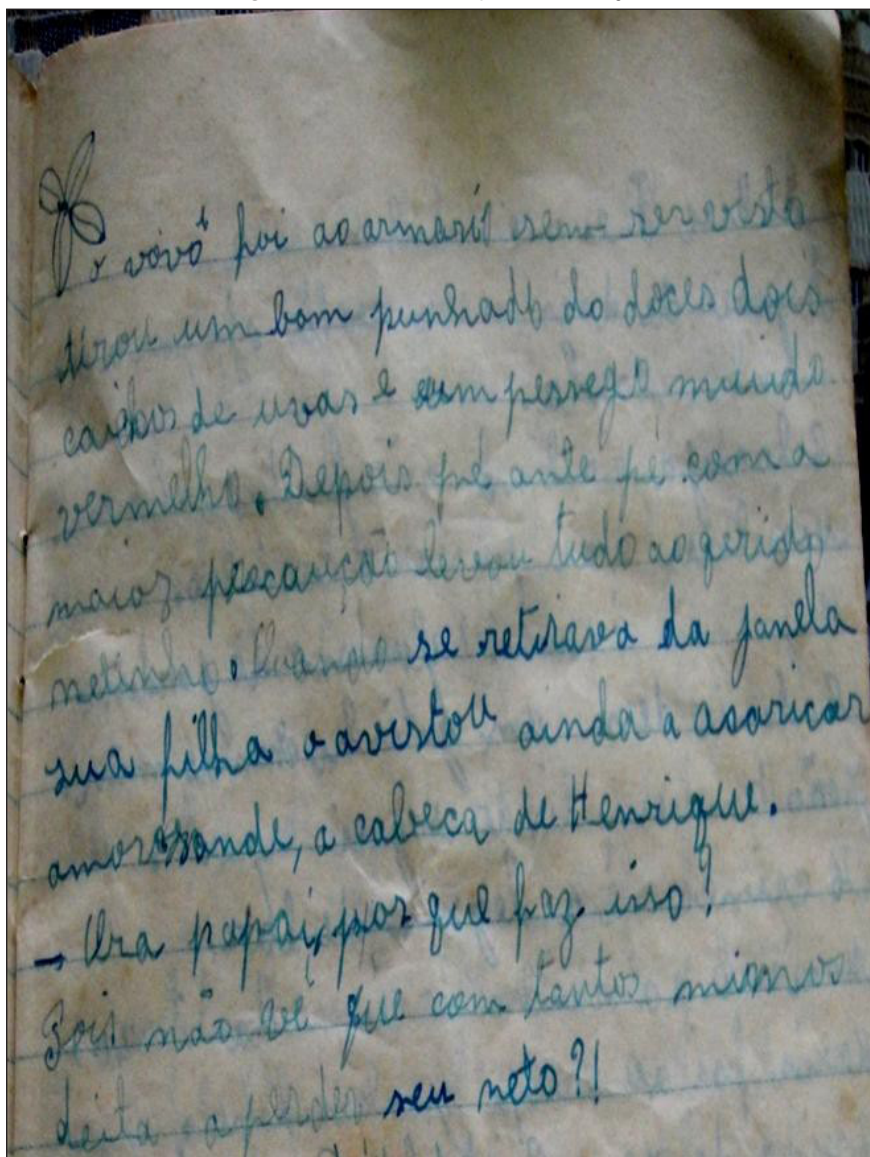 o vôvô foi ao armarió sem ser visto
tirou um bom punhado do doces dois
caichos de uvas e um pessego muido
vermelho. Depois pé ante pé com a
maior precaução levou tudo ao qerido
netinho. Quando se retirava da janela
sua filha o avistou ainda a acariçar
amorosande, a cabeca de Henrique.
– Ora papai, por que faz isso?
Pois não vê que com tantos mimos
deita a perder seu neto?!